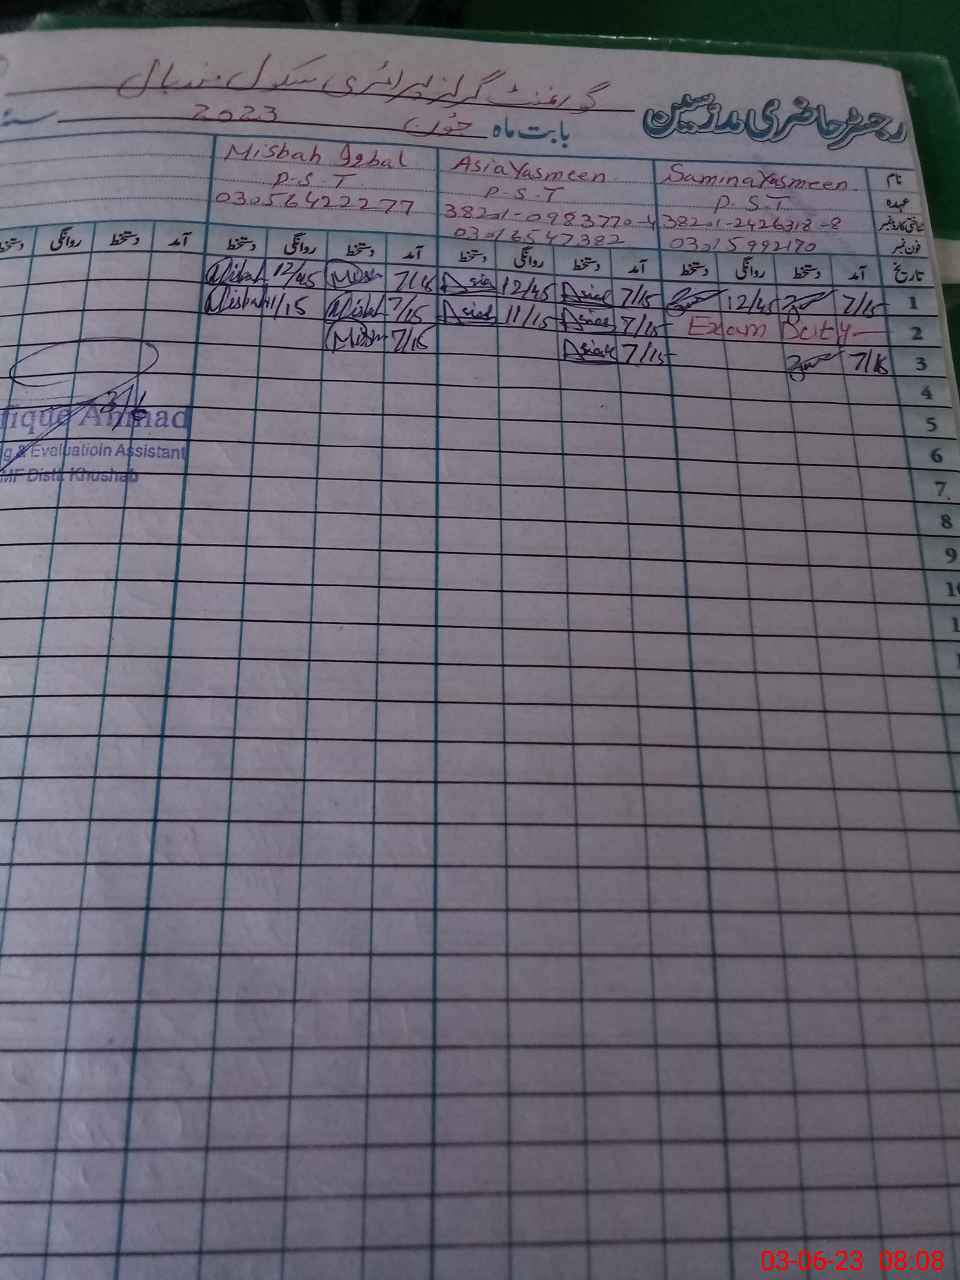 گورنمنٹ گرلز پرائمری سکول
رجسٹر حاضری مدرسین
بابت ماہ جون 2023
نام Samina Yasmeen Asia Yasmeen Misbah Iqbal
عہدہ P.S.T P.S.T P.S.T
شناختی کارڈ نمبر 38201-2426318-8 38201-0983770-4 03056422277
فون نمبر 03015992170 03016547382
تاریخ آمد دستخط روانگی دستخط آمد دستخط روانگی دستخط آمد دستخط روانگی دستخط آمد دستخط روانگی دستخط
1 7/15 12/45 7/15 Asia 12/45 Asia 7/15 Misbah 12/45 Misbah
2 Exam Duty 7/15 Asia 11/15 Asia 7/15 Misbah 11/15 Misbah
3 7/15 7/15 Asia 7/15 Misbah
4
5
6
7
8
9
3/6
Ahmad
g & Evaluatioin Assistant
MF Distt Khushab
03-06-23 08:08